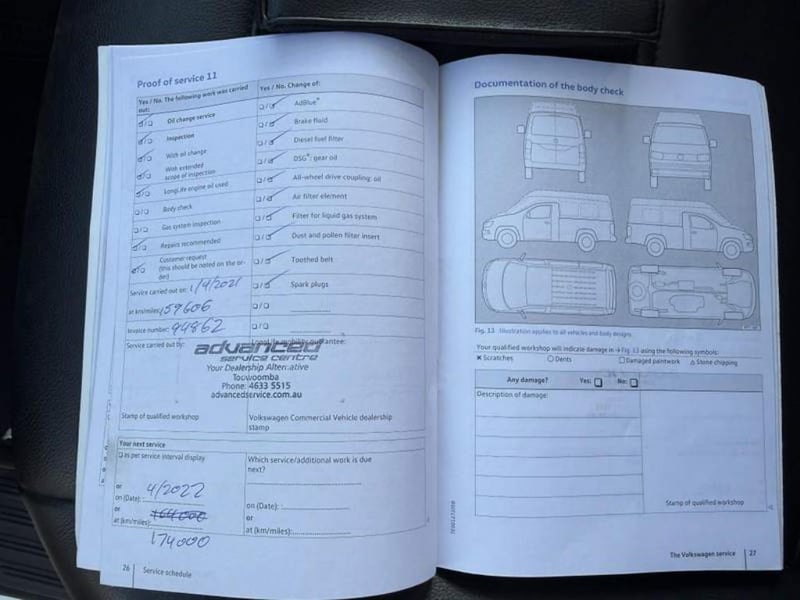 Proof of service 11
Yes / No. The following work was carried out:
Yes / No. Change of:
Oil change service
AdBlue®
Inspection
Brake fluid
With oil change
Diesel fuel filter
With extended scope of inspection
DSG®: gear oil
LongLife engine oil used
All-wheel drive coupling: oil
Body check
Air filter element
Gas system inspection
Filter for liquid gas system
Repairs recommended
Dust and pollen filter insert
Customer request
(this should be noted on the order)
Toothed belt
Service carried out on: 1/4/2021
Spark plugs
at km/miles: 159606
Invoice number: 94862
Service carried out by:
guarantee:
advanced
service centre
Your Dealership Alternative
Toowoomba
Phone: 4633 5515
advancedservice.com.au
Stamp of qualified workshop
Volkswagen Commercial Vehicle dealership stamp
Your next service
as per service interval display
Which service/additional work is due next?
or
on (Date): 4/2022
on (Date):
or
or
at (km/miles): 164000
at (km/miles):
174000
26
Service schedule
Documentation of the body check
Fig. 13 Illustration applies to all vehicles and body designs.
Your qualified workshop will indicate damage in → Fig. 13 using the following symbols:
× Scratches
○ Dents
□ Damaged paintwork
△ Stone chipping
Any damage?
Yes:
No:
Description of damage:
Stamp of qualified workshop
The Volkswagen service
27